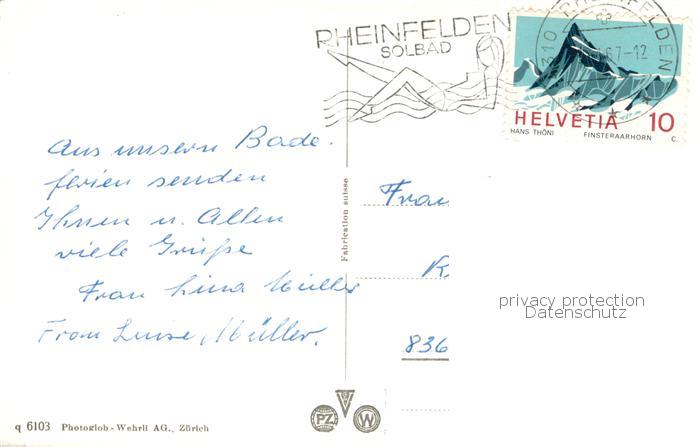 RHEINFELDEN
SOLBAD
RHEINFELDEN
310
67-12
HELVETIA 10
HANS THÖNI FINSTERAARHORN C.
Aus unsern Bade-
ferien senden
Ihnen u. Allen
viele Grüße
Frau Lina Müller
Frau Luise Müller.
Fabrication suisse
Frau
K
836
privacy protection
Datenschutz
PZ V W
q 6103 Photoglob-Wehrli AG., Zürich